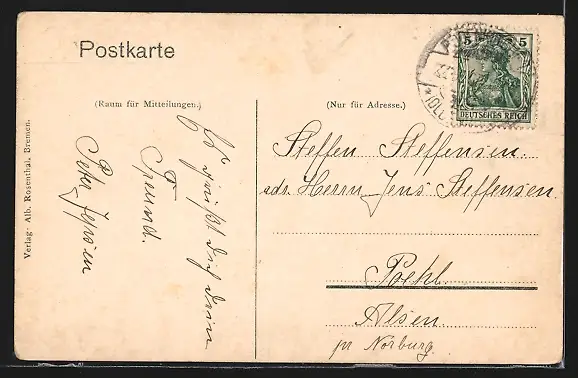 Postkarte
(Raum für Mitteilungen.)
(Nur für Adresse.)
5 5
DEUTSCHES REICH
Es grüßt Dich Dein
Freund.
Peter Jepsen
Steffen Steffensen.
adr. Herrn Jens Steffensen
Poehl.
Alsen
pr Norburg.
Verlag: Alb. Rosenthal, Bremen.